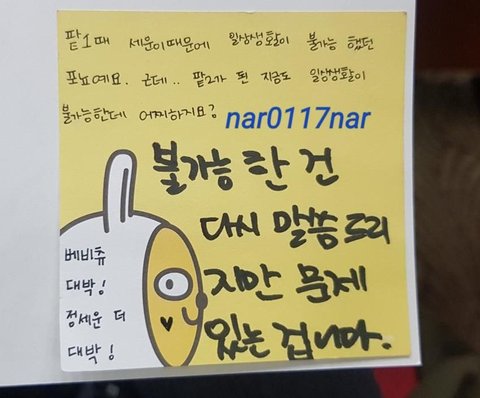 팥1때 세운이때문에 일상생활이 불가능 했던
포뇨예요. 근데.. 팥2가 된 지금도 일상생활이
불가능한데 어찌하지요?
nar0117nar
불가능 한 건
다시 말씀 드리
지만 문제
있는 겁니다.
베비츄
대박!
정세운 더
대박!